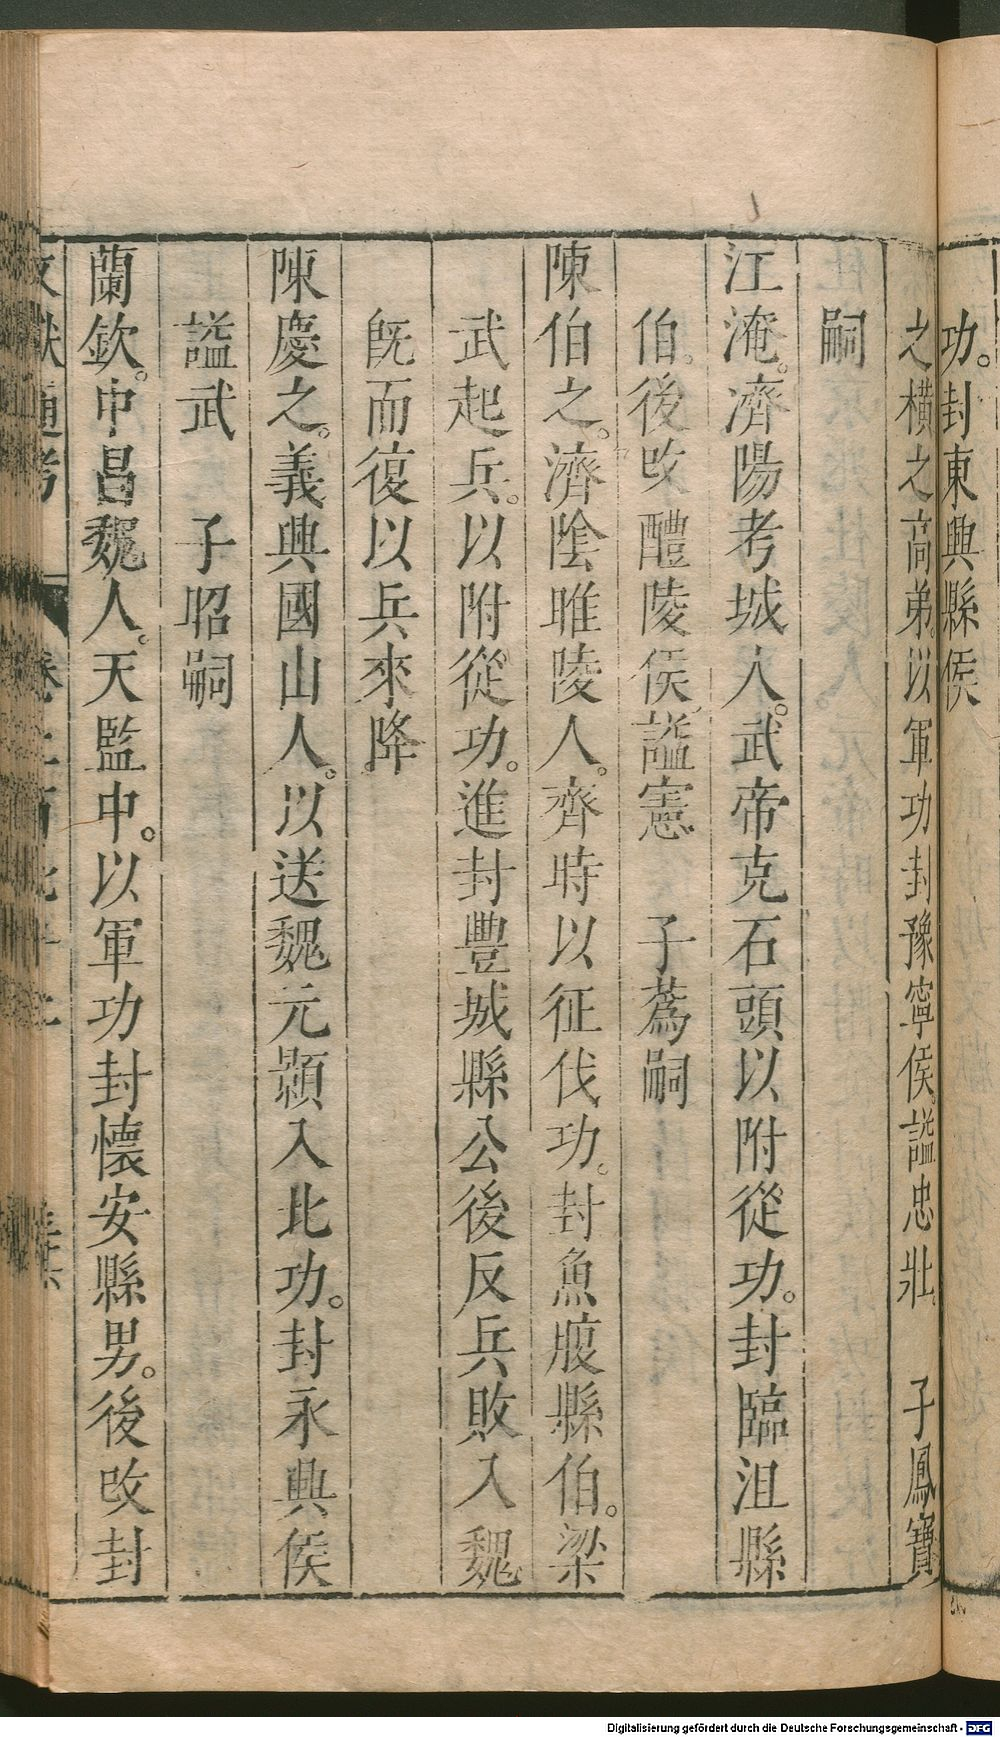 功。封東興縣侯
之橫之高弟。以軍功封豫寧侯。謚忠壯。　子鳳寶
嗣
江淹。濟陽考城人。武帝克石頭以附從功。封臨沮縣
伯。後改醴陵侯。謚憲　子蒍嗣
陳伯之。濟陰睢陵人。齊時以征伐功。封魚腹縣伯。梁
武起兵。以附從功。進封豐城縣公後反兵敗入魏
旣而復以兵來降。
陳慶之。義興國山人。以送魏元顥入北功。封永興侯
謚武　子昭嗣
蘭欽。中昌魏人。天監中。以軍功封懷安縣男。後改封
文獻通考
Digitalisierung gefördert durch die Deutsche Forschungsgemeinschaft - DFG